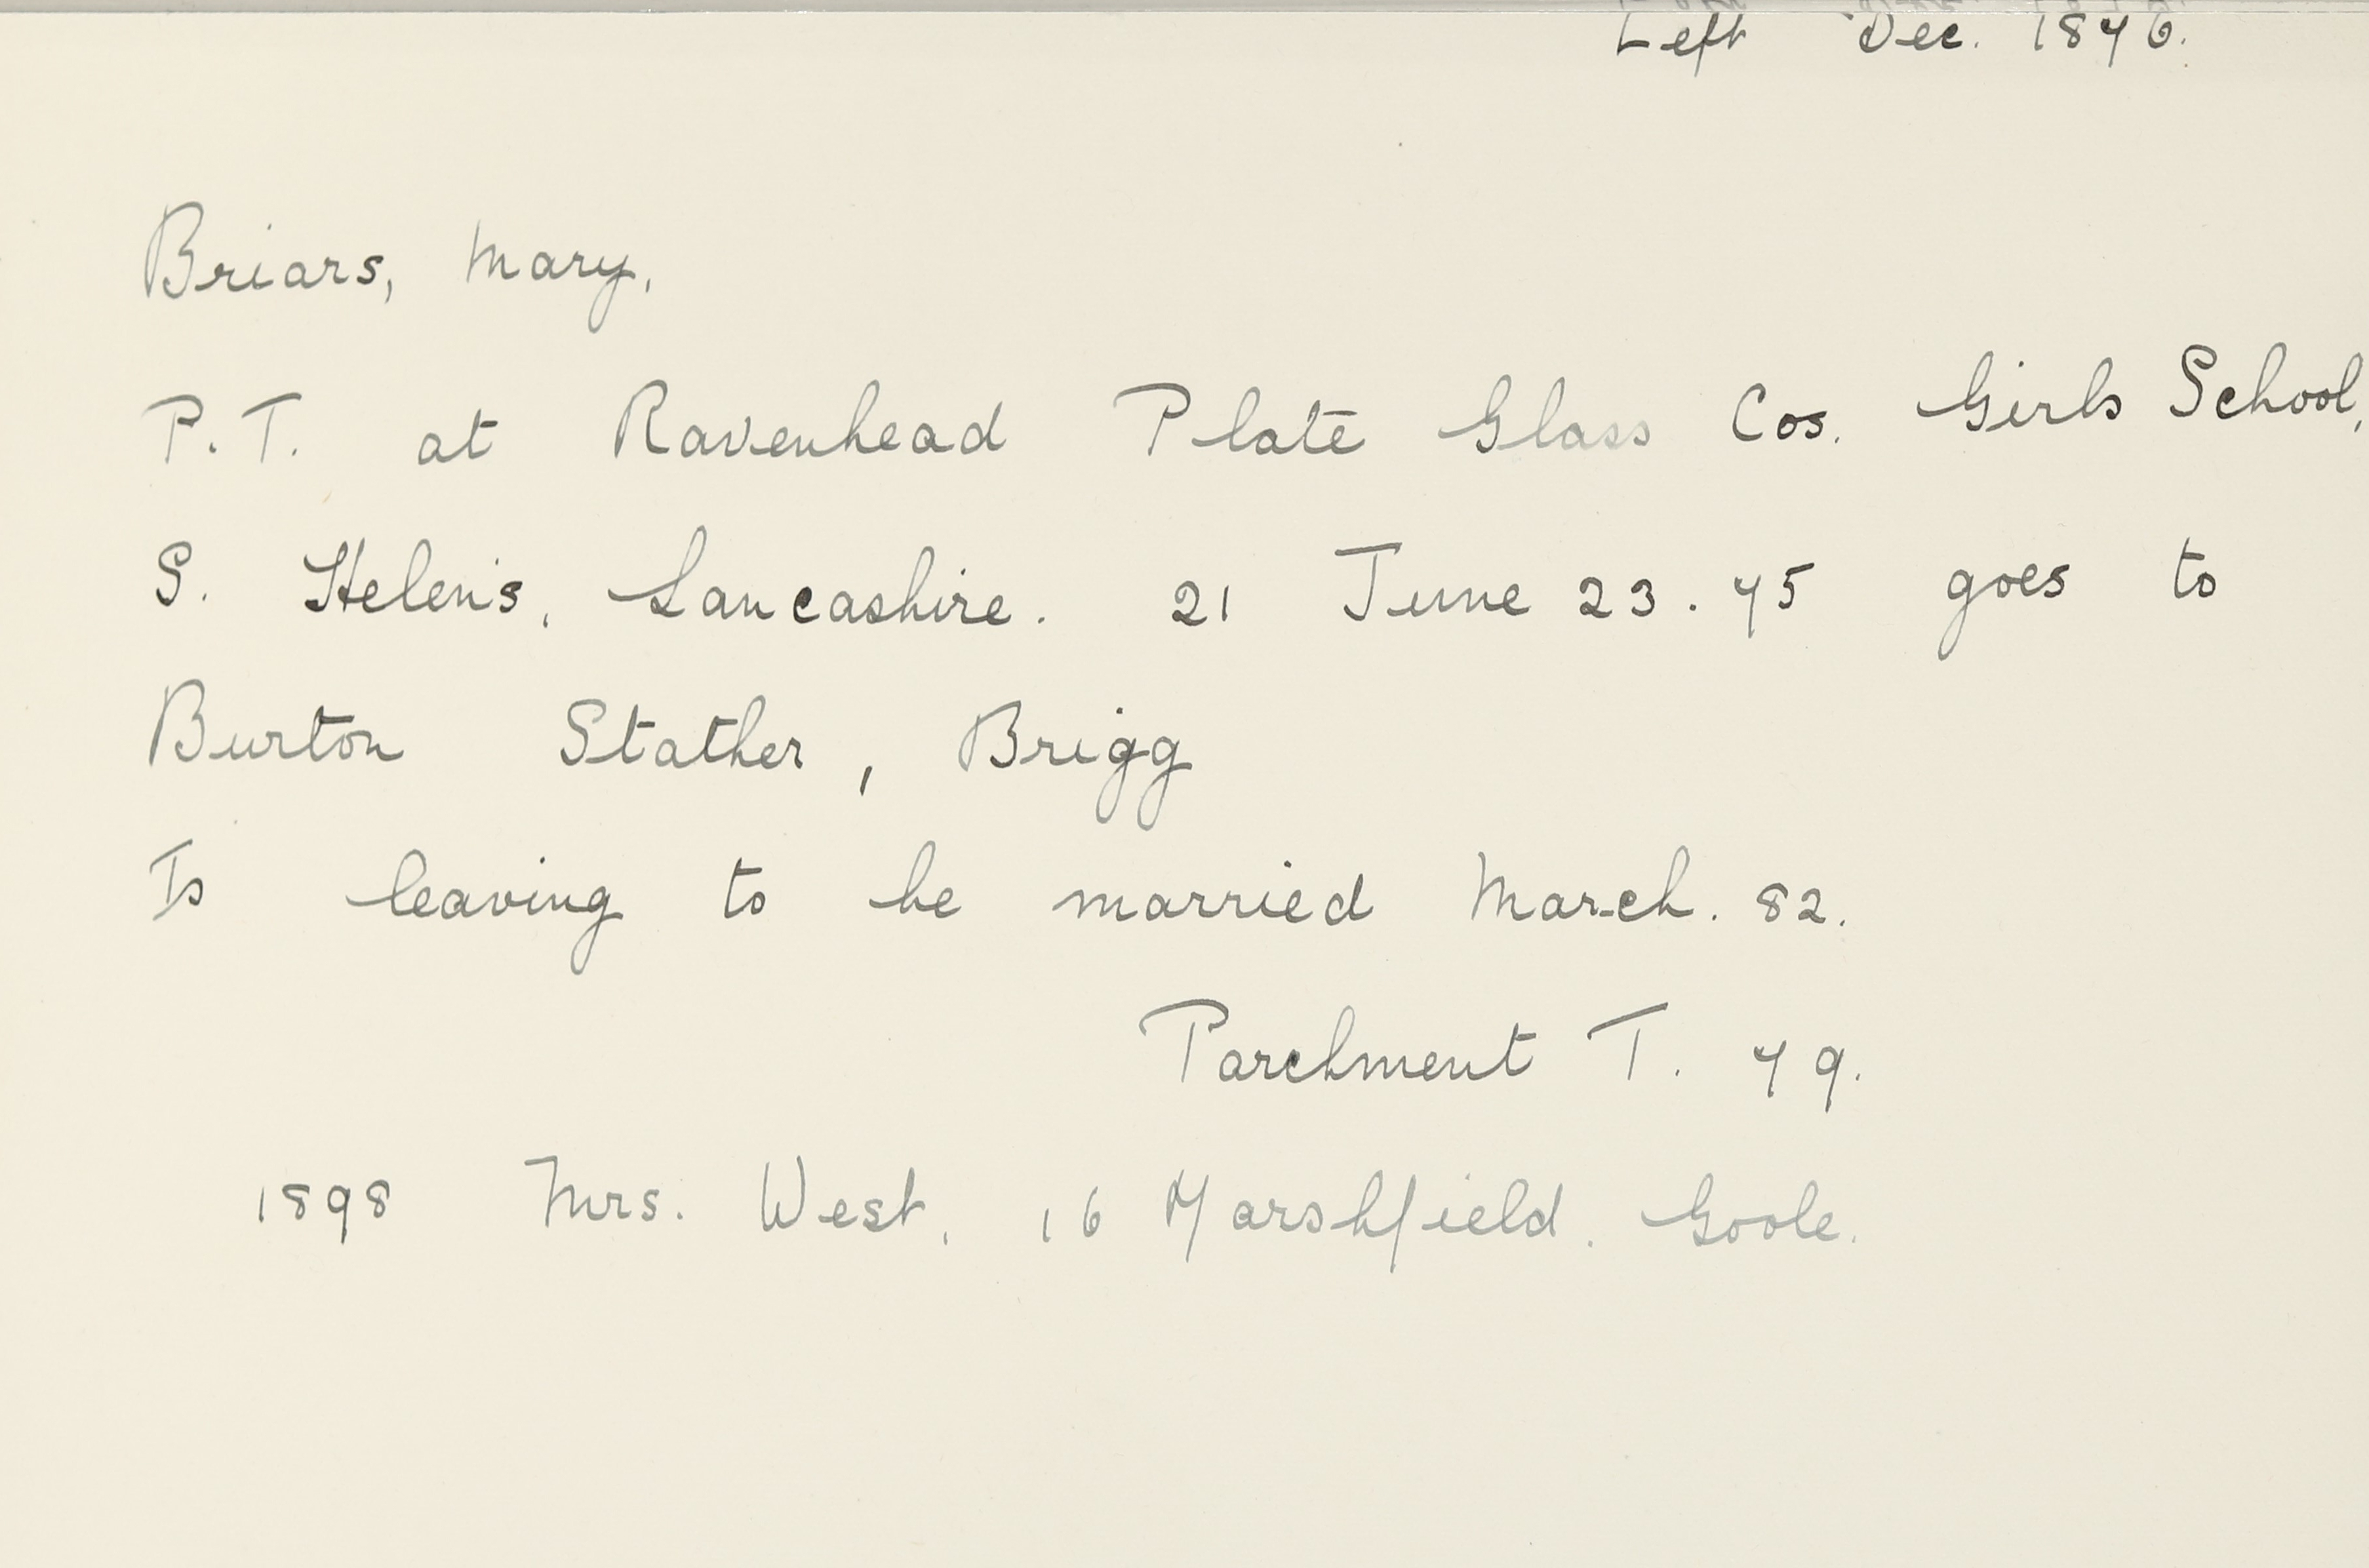 Left Dec. 1876.
Briars, Mary.
P.T. at Ravenhead Plate Glass Cos. Girls School,
S. Helen's, Lancashire. 21 June 23. 75 goes to
Burton Stather, Brigg
Is leaving to be married March. 82.
Parchment T. 79.
1898 Mrs. West, 16 Marshfield. Goole.